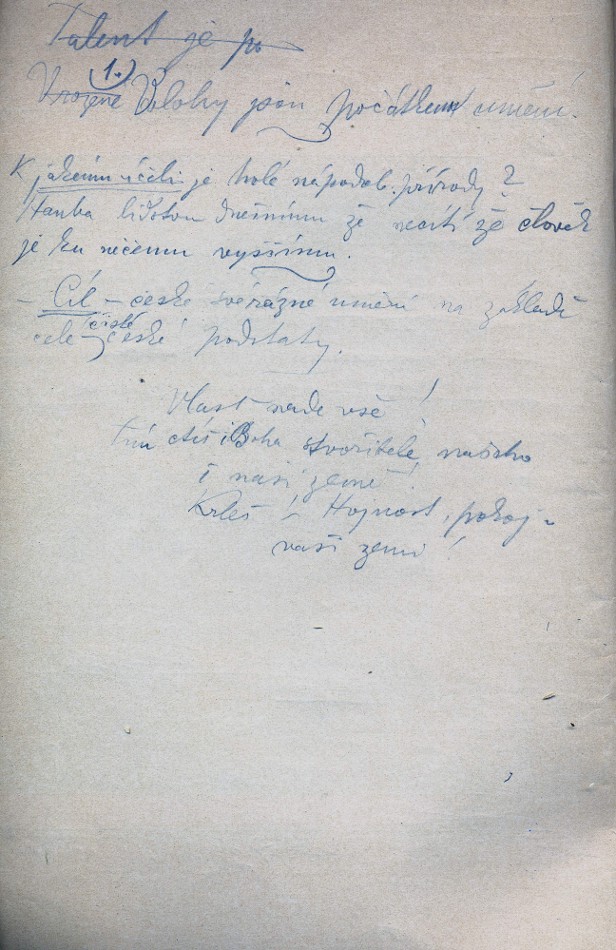 Talent je po
1.)
Vrozené Vlohy jsou počátkem umění.
K jakému účeli je holé nápodob. přírody?
Hanba lidstvu dnešnímu že necítí že člověk
je ku něčemu vyššímu.
– Cíl – české svérázné umění na základě
čistě
české podstaty.
Vlast nade vše!
Tím ctíš i Boha stvořitele našeho
i naší země!
Krleš! Hojnost, pokoj –
naší zemi!